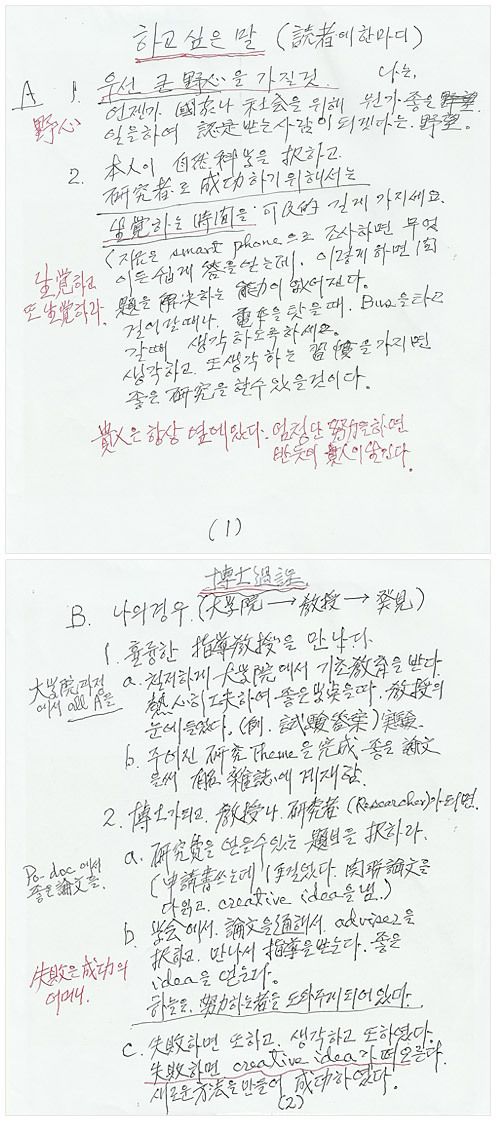 하고 싶은 말 (読者에 한마디)
A 1. 우선 큰 野心을 가질것. 나는,
野心
언젠가 國家나 社会을 위해 뭔가 좋은
일을하여 認定받는사람이되겠다는 野望.
2. 本人이 自然科学을 択하고
研究者로 成功하기위해서는
생覚하는 時間을 可及的 길게 가지세요.
(지금은 smart phone으로 조사하면 무엇
이든 쉽게 答을얻는데, 이렇게하면
생覚하고
또 생覚하라.
題을 解决하는 能力이 없어진다.
걸어갈때나, 電車을 탓을때, Bus을타고
갈때 생각하도록하세요.
생각하고 또생각하는 習慣을가지면
좋은研究을 할수있을것이다.
貴人은 항상 옆에있다. 努力을하면
반듯이 貴人이
(1)
博士過課
B. 나의경우. (大学院 → 教授 → 発見)
1. 훌륭한 指導教授을 만났다.
大学院과정
에서 all A을
a. 철저하게 大学院에서 기초教育을받다.
熱心히工夫하여 좋은 教授의
눈에들었다. (例. 試験答案) 実験.
b. 주어진 研究 Theme을 完成 좋은 論文
을써 有名 雜誌에 게재함.
2. 博士가되고, 教授나 研究者 (Researcher)가되면.
a. 研究費을 얻을수있는 題目을 択하라.
Po-doc에서
좋은論文을.
(申請書쓰는데 関聯論文을
다읽고. creative idea을냄.)
b. 学会에서. 論文을通해서. adviser을
択하고. 만나서 指導을받는다. 좋은
idea을 얻을다.
失敗은成功의
어머니.
하늘은, 努力하는者을 도와주게되어있다.
c. 失敗하면 또하고, 생각하고 또하였다.
失敗하면 creative idea가떠오른다.
새로운方法을만들어 成功하였다.
(2)